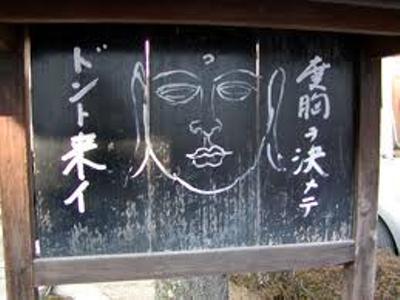 度胸ヲ決メテ
ドント来イ